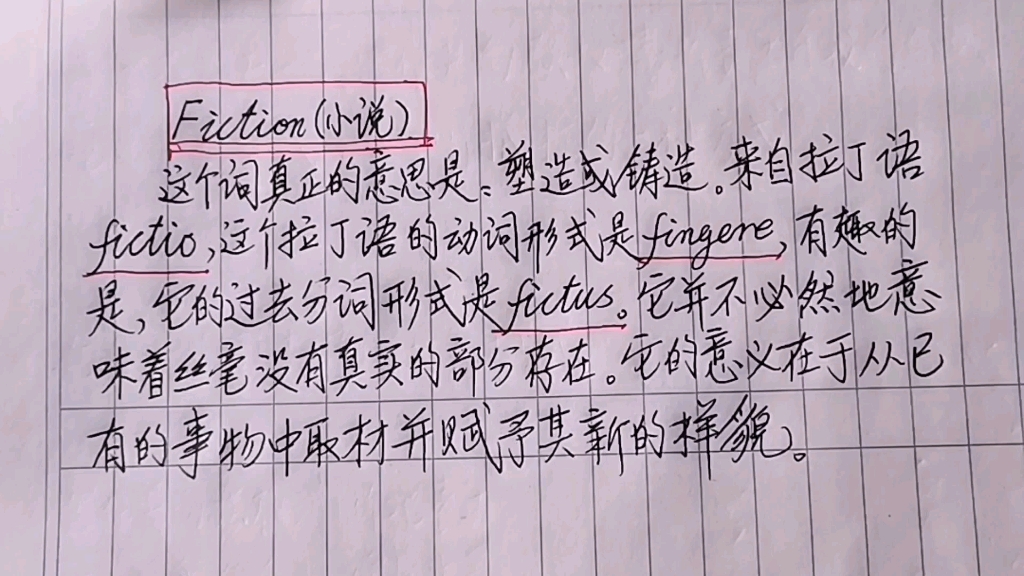 Fiction(小说)
这个词真正的意思是:塑造或铸造。来自拉丁语
fictio,这个拉丁语的动词形式是fingere,有趣的
是,它的过去分词形式是fictus。它并不必然地意
味着丝毫没有真实的部分存在。它的意义在于从已
有的事物中取材并赋予其新的样貌。